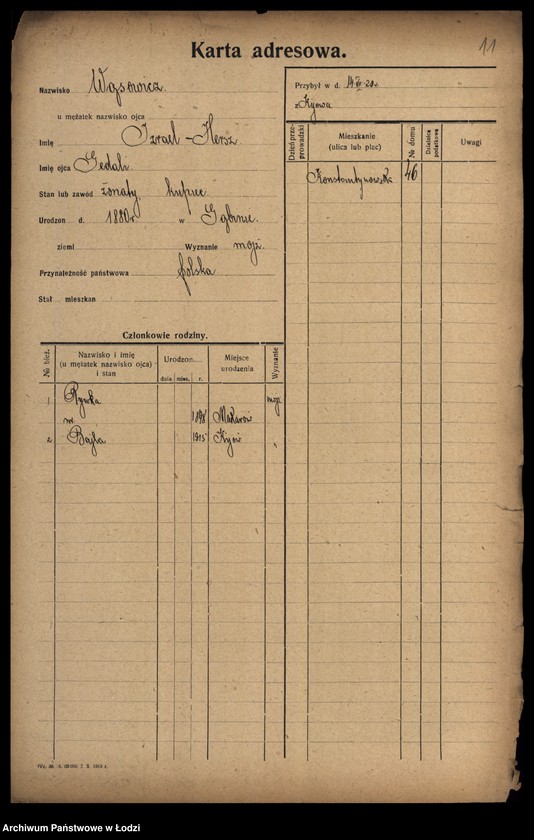 Karta adresowa.
11
Nazwisko Wąsowicz
u mężatek nazwisko ojca
Imię Izrael-Hersz
Imię ojca Gedali
Stan lub zawód żonaty, kupiec
Urodzon d. 1880 r w Gąbinie.
ziemi Wyznanie mojż.
Przynależność państwowa polska
Stał mieszkan
Przybył w d. 20 r.
z Kijowa
Dzień przeprowadzki
Mieszkanie
(ulica lub plac)
№ domu
Dzielnica podatkowa
Uwagi
Konstantynowska 46
Członkowie rodziny.
№ bież.
Nazwisko i imię
(u mężatek nazwisko ojca)
i stan
Urodzon.
dnia mies. r.
Miejsce
urodzenia
Wyznanie
1 Rywka mojż
1898 Makarów
2 Bajla 1915 Kijów
Archiwum Państwowe w Łodzi